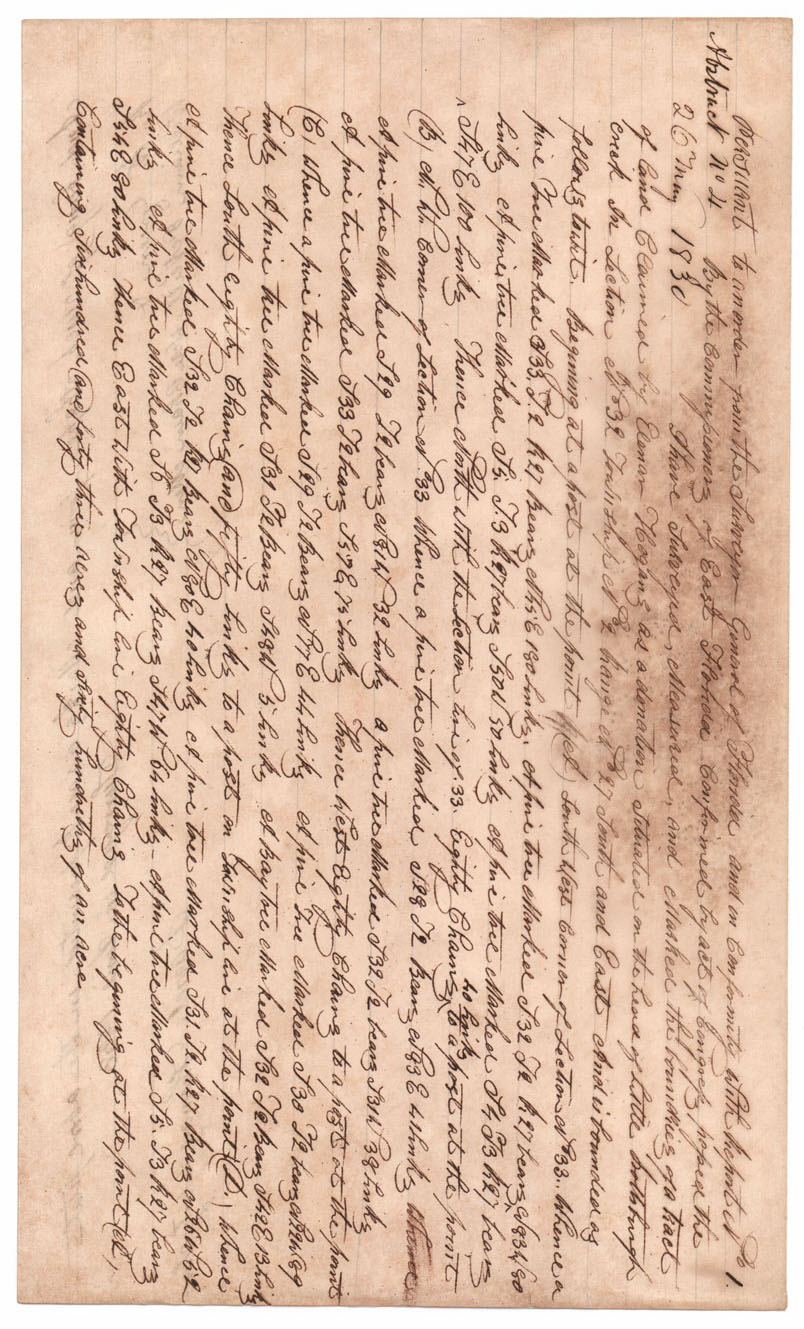 Persuant to an order from the Surveyor General of Florida and in Conformity with Report No 1.
Abstract No 4 By the Commissioners of East Florida Confirmed by act of Congress, passed the
26th May 1830 I have Surveyed, Measured, and Marked the boundries of a tract
of land Claimed by Elenor Hogans as a donation Situated on the head of little
creek In Section No 32 Township No 2 Range No 27 South and East And is bounded as
follows towit. Begining at a post at the point (A) South West Corner of Section No 33. Whence a
pine tree Marked S33. T2 R27 Bears N15E 130 links. A pine tree Marked S32 T2 R27 bears N83W 80
links A pine tree Marked S5. T3 R27 bears S50W 50 links A pine tree Marked S4 T3 R27 bears
S47E 100 links Thence North With the Section line of 33. Eighty Chains 40 links to a post at the point
(B) N.W. Corner of Section No 33 Whence a pine tree Marked S28 T2 Bears N83E 41 links Whence
A pine tree Marked S29 T2 bears N81W 32 links a pine tree Marked S32 T2 bears S31W 38 links
A pine tree Marked S33 T2 bears S57E 75 links Thence West Eighty Chains to a post at the point
(C) Whence a pine tree Marked S29 T2 Bears N17E 44 links A pine tree Marked S30 T2 bears 69
links A pine tree Marked S31 T2 Bears S48W 5 links A Bay tree Marked S32 T2 Bears S42E 13 links
Thence South eighty Chains and fifty links to a post on Township line at the point (D) Whence
A pine tree Marked S32 T2 R27 Bears N80E 40 links A pine tree Marked S31. T2 R27 Bears 62
links A pine tree Marked S6 T3 R27 Bears S47W links - A pine tree Marked S5. T3 R27 bears
S44E 90 links Thence East With Township line Eighty Chains To the begining at the point (A)
Containing Sixhundred and forty three acres and Sixty hundredths of an acre